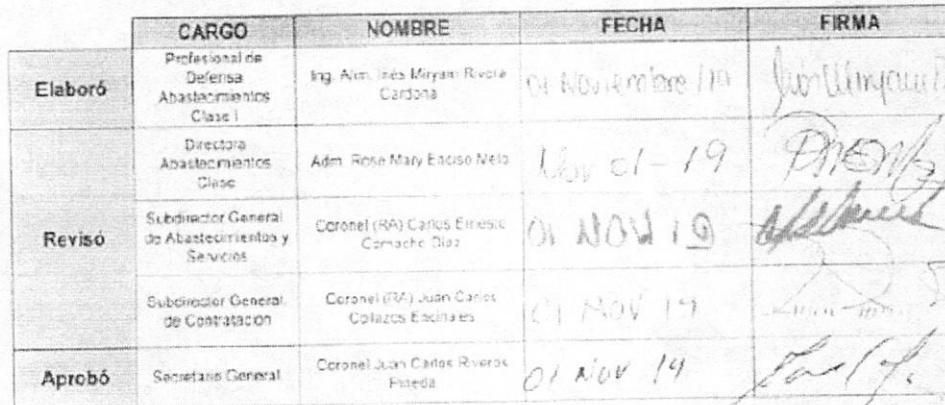 CARGO NOMBRE FECHA FIRMA
Elaboró
Profesional de
Defensa
Abastecimientos
Clase I
Ing. Alim. Inés Miryam Rivera
Cardona
01 Noviembre/19
Directora
Abastecimientos
Clase
Adm. Rose Mary Enciso Melo
Nov 01-19
Revisó
Subdirector General
de Abastecimientos y
Servicios
Coronel (RA) Carlos Ernesto
Camacho Díaz
01 NOV 19
Subdirector General
de Contratación
Coronel (RA) Juan Carlos
Collazos Encinales
01 NOV 19
Aprobó
Secretario General
Coronel Juan Carlos Riveros
Pineda
01 NOV 19